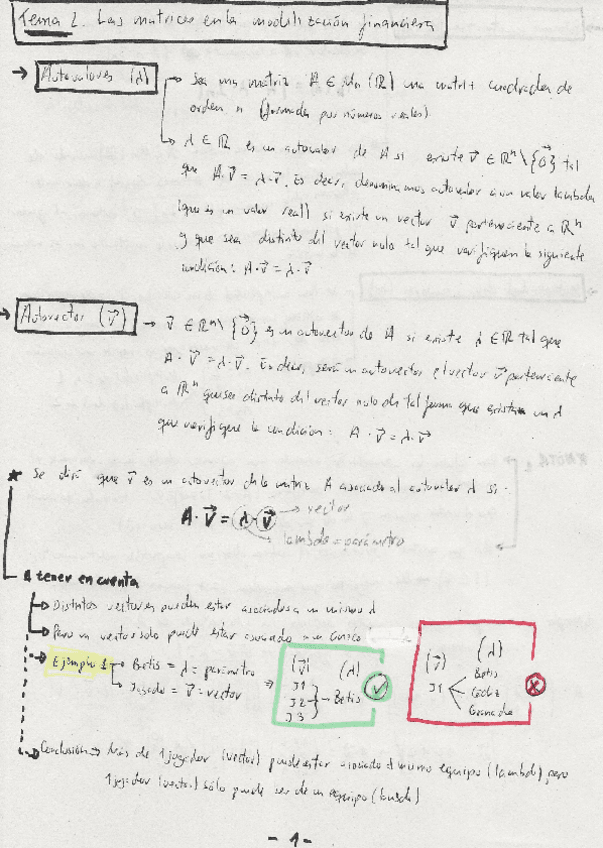 Tema 2. Las matrices en la modelización financiera
→ Autovalores (λ) → Sea una matriz A ∈ Mn (ℝ) una matriz cuadrada de
orden n (formada por números reales).
→ λ ∈ ℝ es un autovalor de A si existe v⃗ ∈ ℝⁿ\{0⃗} tal
que A·v⃗ = λ·v⃗. Es decir, denominamos autovalor a un valor lambda
(que es un valor real) si existe un vector v⃗ perteneciente a ℝⁿ
y que sea distinto del vector nulo tal que verifiquen la siguiente
condición: A·v⃗ = λ·v⃗
→ Autovector (v⃗) → v⃗ ∈ ℝⁿ\{0⃗} es un autovector de A si existe λ ∈ ℝ tal que
A·v⃗ = λ·v⃗. Es decir, será un autovector el vector v⃗ perteneciente
a ℝⁿ que sea distinto del vector nulo de tal forma que exista un λ
que verifique la condición: A·v⃗ = λ·v⃗
* Se dirá que v⃗ es un autovector de la matriz A asociado al autovalor λ si.
A·v⃗ = λ·v⃗ → vector
→ lambda = parámetro
A tener en cuenta
→ Distintos vectores pueden estar asociados a un mismo λ
→ Pero un vector solo puede estar asociado a un único
→ Ejemplo 1 → Betis = λ = parámetro
→ Jugador = v⃗ = vector
⇒ (v⃗) (λ)
J1
J2 → Betis ✓
J3
(v⃗) (λ)
Betis
J1 Cádiz ✗
Granada
→ Conclusión → Más de 1 jugador (vector) puede estar asociado al mismo equipo (lambda), pero
1 jugador (vector) sólo puede ser de un equipo (lambda)
- 1 -